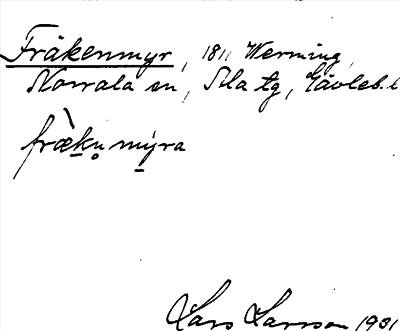 Fräkenmyr, 1811 Werming,
Norrala sn, Ala tg, Gävleb. l
fræku mýra
Lars Larsson 1931